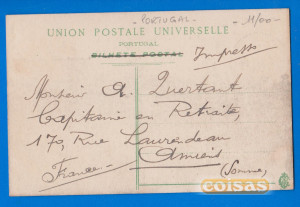 PORTUGAL - 11/00 -
UNION POSTALE UNIVERSELLE
PORTUGAL
BILHETE POSTAL
Impresso
Monsieur A. Quertant
Capitaine en Retraite,
170, Rue Laurendeau
Amiens
France
(Somme)
coisas